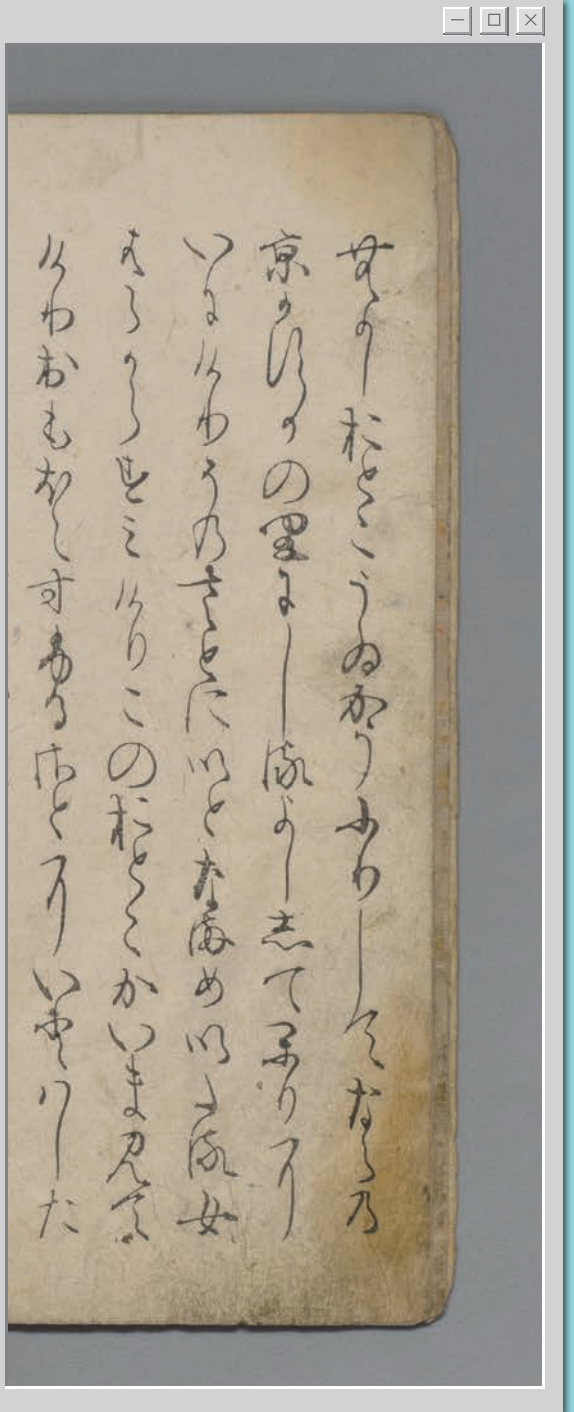 むかしおとこうゐかうふりしてなら乃
京かすかの里にしるよし志てかりに
いにけりそのさとにいとなまめいたる女
はらからすミけりこのおとこかいま見て
けりおもほえすふるさとにいとハした